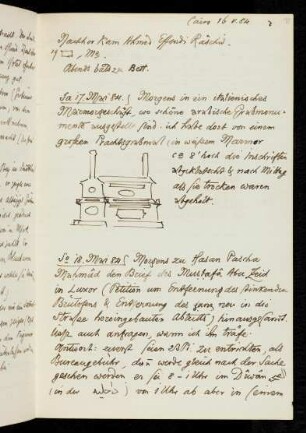 Cairo 16 V. 84
Nachher kam Ahmed Effendi
Abends bald zu Bett.
Sa 17. Mai 84) Morgens in ein italienisches
Marmorgeschäft, wo schöne arabische Grabmonu-
mente ausgestellt sind. ich habe dort von einem
großen Prachtgrabmal in weißem Marmor
8' hoch die Inschriften
abgeklatscht & nach Mittag
als sie trocken waren
abgeholt.
So 18. Mai 84) Morgens zu Hasan Pascha
Mahmûd den Brief des Mustafâ Abu Zeid
in Luxor (Petition um Entfernung des stinkenden
& Entfernung des ganz neu in die
Strasse hereingebauten Abtritts) hinausgeschickt
anfragen, wann ich ihn treffe.
Antwort: zuerst seien zu entrichten, als
Bureaugebühr, dann werde gleich nach der Sache
gesehen werden er sei 8 - 1 Uhr im Dîwân
(in der ) von 1 Uhr ab aber in seinem